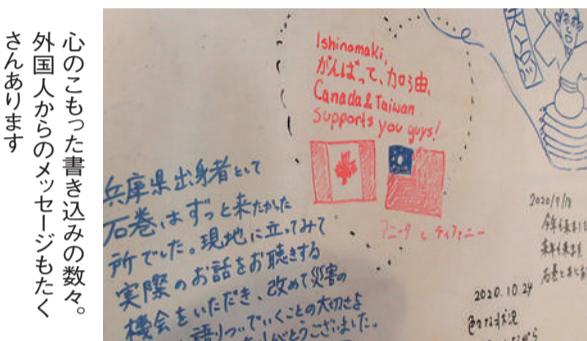 心のこもった書き込みの数々。
外国人からのメッセージもたく
さんあります
Ishinomaki,
がんばって、加油、
Canada & Taiwan
supports you guys!
アニータ と ティファニー
兵庫県出身者として
石巻はずっと来たかった
所でした。現地に立ってみて
実際のお話をお聴きする
機会をいただき、改めて災害の
語りついでいくことの大切さよ
ありがとうございました。
2020/9/18
2020.10.24